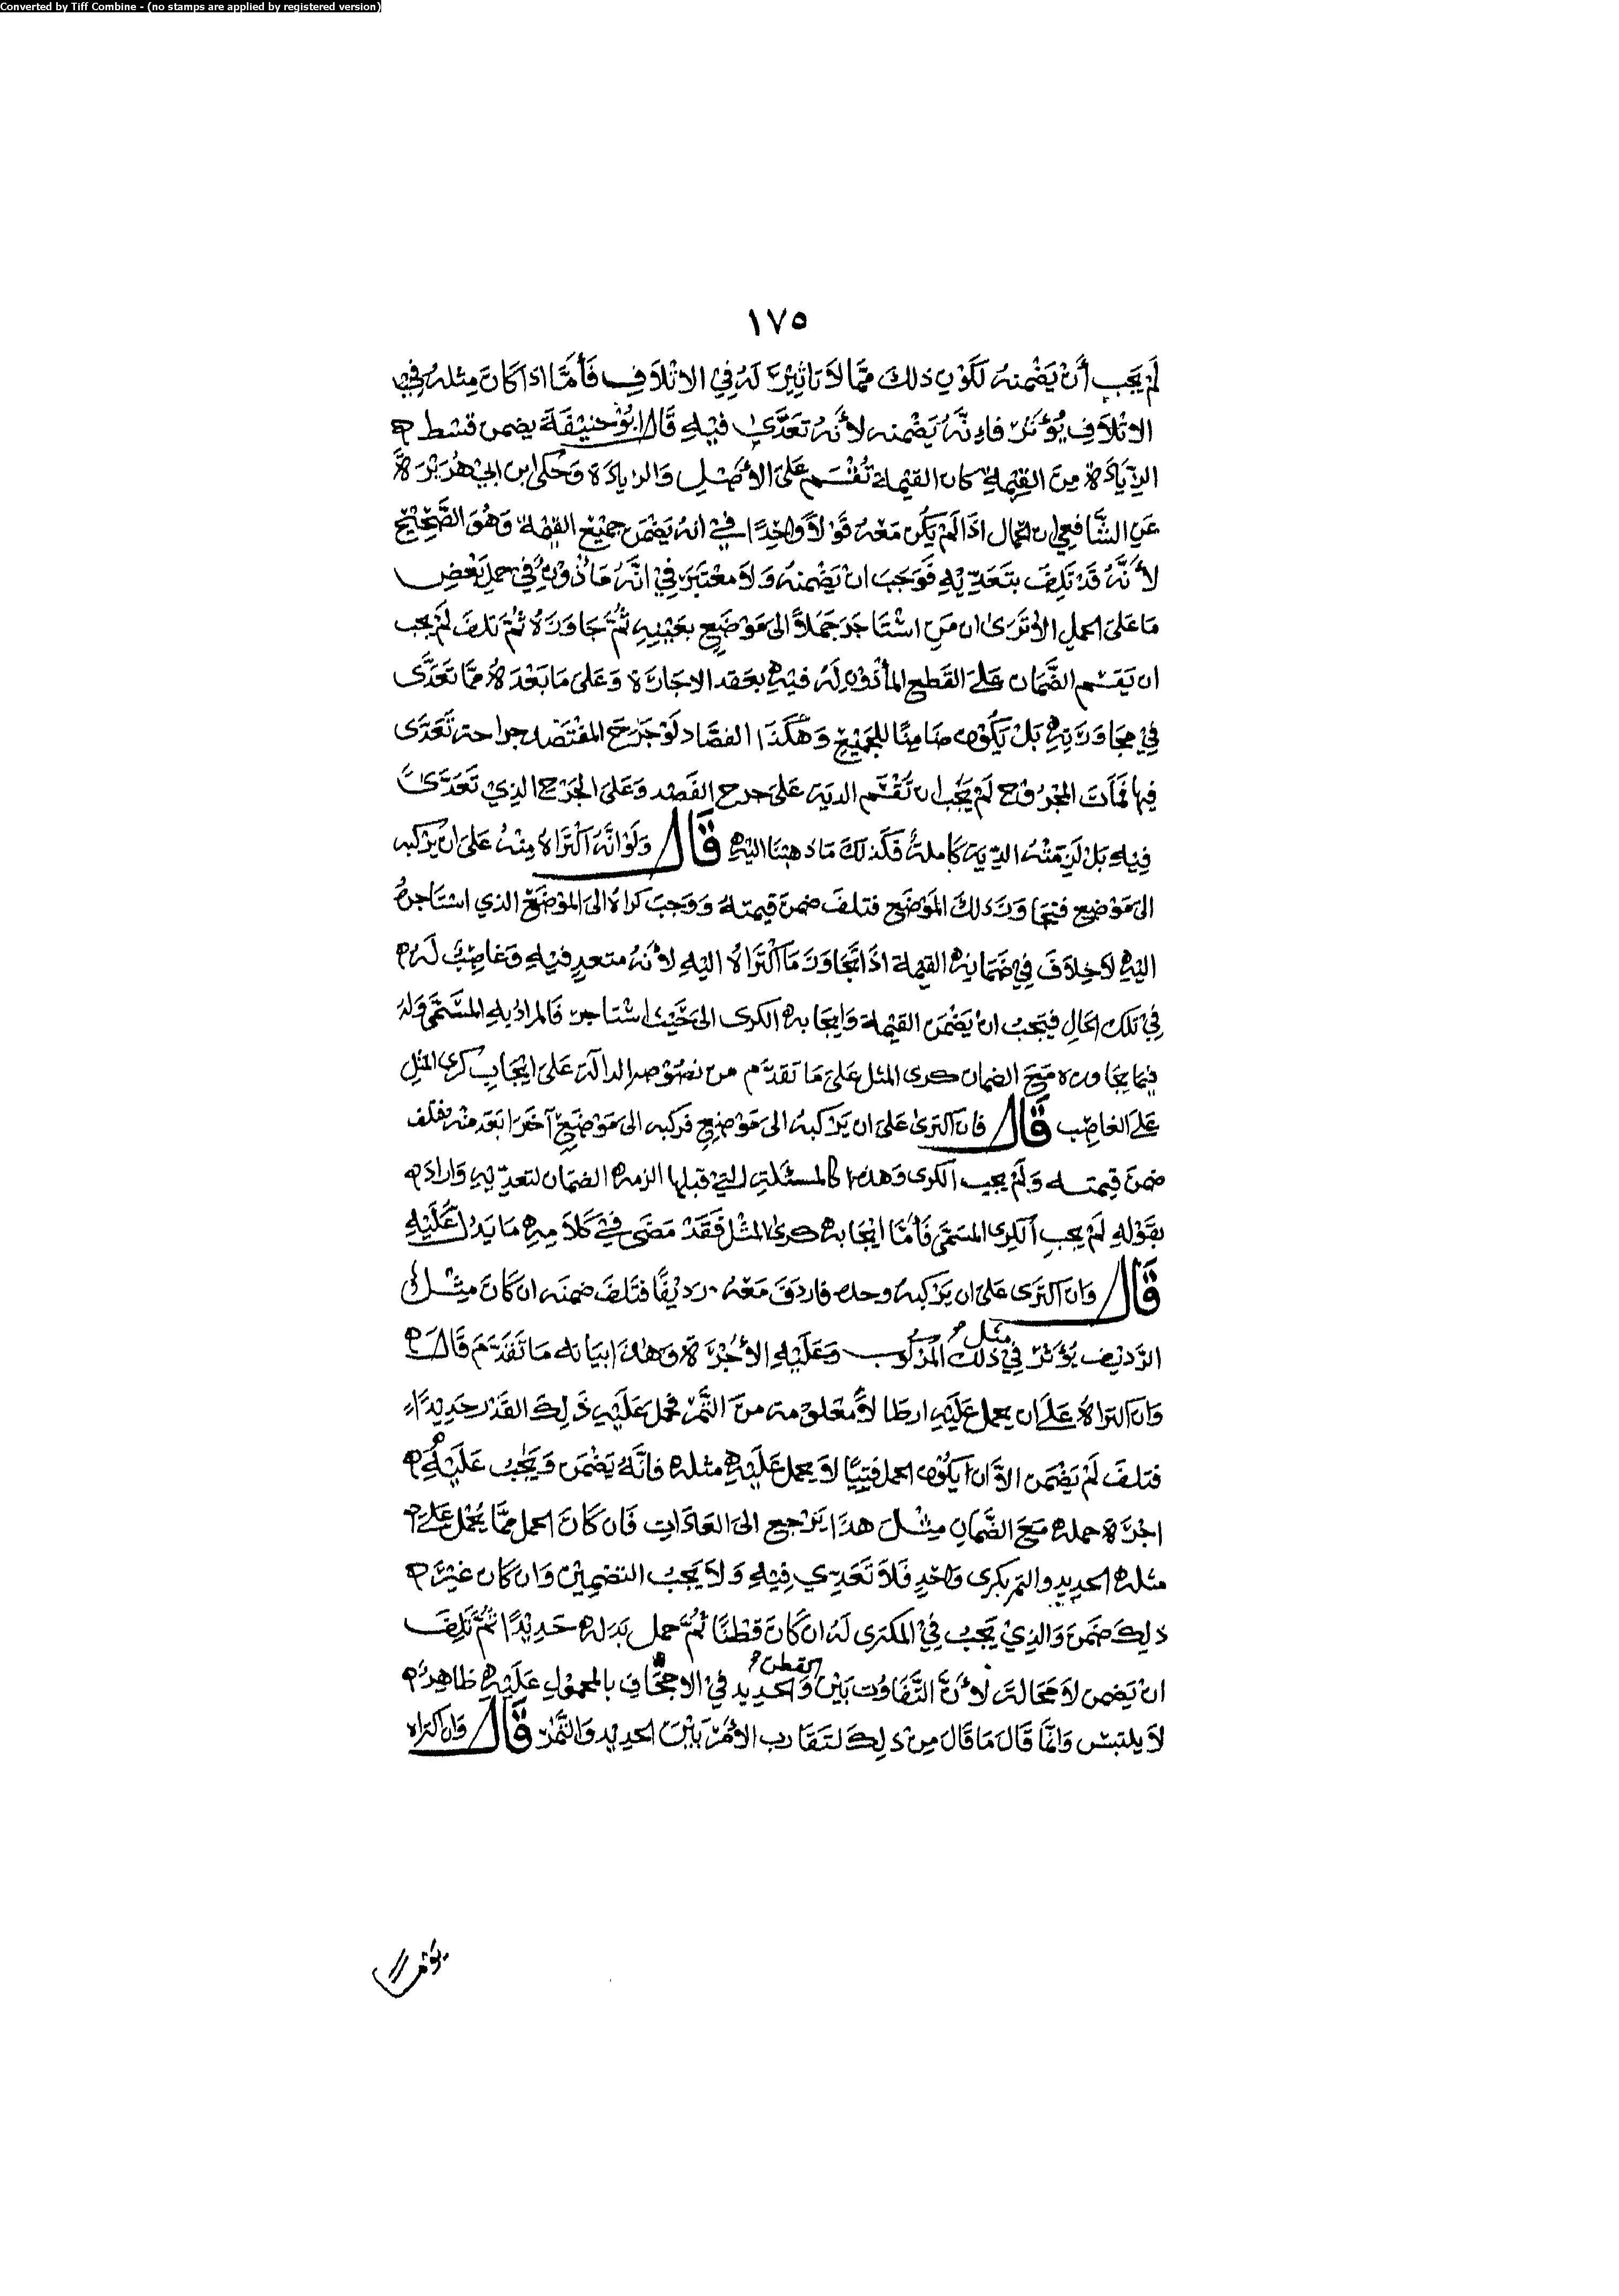 Converted by Tiff Combine - (no stamps are applied by registered version)
١٧٥
لَمْ يَجِب أَنْ يَضْمنه لكَوْن ذلك مِمَّا لاَ تاثِيْرَ لَهُ فِي الاتْلاَفِ فَأَمَّا اذا كَانَ مِثله فِي
الاتْلاَفِ يُؤَثر فإِنَّهُ يَضْمنه لأَنهُ تعَدَّى فيْهِ قَال ابُوْ حَنِيْفَةَ يضمن قسْط
الزِّيَادَة مِنَ القِيْمَةِ كان القيْمة تُقْسَم عَلىَ الأَصْل وَالزيادَة وَحكى ابن ابي هُرَيْرَة
عَنِ الشَّافعي ان الحمال اذَا لَمْ يَكُن مَعَهُ قَوْلاً وَاحِدًا فِيْ انهُ يَضْمَن جمِيْعَ القيْمة وَهُوَ الصَّحِيْح
لأَنَّهُ قَدْ تَلِفَ بتَعَدِّيْهِ فَوَجَبَ انْ يَضْمنهُ وَلاَ معْتَبَرَ فِيْ انَّهُ مَأْذُوْن فِيْ حملِ بَعْضِ
مَا عَلىَ الحملِ الاُ تَرَى ان مَنِ اسْتَاجَرَ جَمَلاً الى مَوْضِعٍ بعَيْنِهِ ثُمَّ جَاوَزَهُ ثُمَّ تلفَ لَمْ يجب
ان يَقسَم الضَّمَان عَلىَ القَطع المأْذُوْن لَهُ فيْهِ بعَقد الاجَارَة وَعَلى مَا بَعْدَهُ مِمَّا تَعَدَّى
فِيْ مجَاوَزَتِهِ بَلْ يَكُوْن ضَامِنًا للجَمِيْعِ وَهَكَذَا الفصَّاد لَوْ جَرَحَ المفْتَصَد جراحة تَعَدَّى
فِيها فَمَاتَ المجْرُوْح لَمْ يَجُب ان تُقْسَم الدية عَلىَ جرح الفَصْد وَعَلىَ الجَرْحِ الذِيْ تَعَدَّى
فِيْهِ بَلْ لَزِمَتْهُ الدِّيَة كَاملةً فَكَذلكَ مَا ذهبْنَا اليْهِ قَال وَلَوْ انَّهُ اكْتَرَاهُ مِنْهُ عَلىَ ان يَرْكبه
الى مَوْضِعٍ فتجَاوَزَ ذلكَ المَوْضِع فتلفَ ضمنَ قيمتهُ وَوَجبَ كراهُ الىَ المَوْضعِ الذي اسْتَاجرهُ
اليْهِ لاَ خِلاَفَ فِيْ ضَمَانِهِ القيْمة اذَا تَجَاوَزَ مَا اكْتَرَاهُ اليْهِ لأَنهُ متعدٍ فيْهِ وَغَاصِبٌ لَهُ
فِيْ تلك الحَالِ فيَجبُ انْ يَضْمَن القيْمة وَايجابه الكرى الى حَيْث اسْتَاجره فَالمراد بهِ المسَمَّى وَلهُ
فيْمَا يجاوزه مَعَ الضمان كرى المثل عَلىَ مَا تقدَّم من نصُوْص الدالة عَلىَ ايْجَابِ كرى المثلِ
عَلىَ الغاصِب قَال فان اكترى عَلىَ ان يَرْكبهُ الى مَوْضِعٍ فركبه الى مَوْضعٍ آخَر ابعَد منه فتلف
ضمنَ قيمته وَلَمْ يجب الكرى وَهذه كالمسئلة التِيْ قبلها الزمه الضمَان لتعدِّيْهِ وَارادَ
بقَوْلهِ لَمْ يجب الكِرى المسَمَّى فَأَمَّا ايْجَابه كرى المثْل فَقَدْ مَضَى فِيْ كَلاَمِهِ مَا يَدُل عَلَيْهِ
قَال وَان اكترَى عَلىَ ان يَرْكبهُ وحده فاردفَ مَعَهُ رديْفًا فتَلفَ ضمنَه ان كَانَ مِثْل
الرَّدِيْف يُؤَثرُ فِيْ مثل ذلكَ المرْكوب وَعَلَيْهِ الأُجْرَة وَهذا بيَانه مَا تَقَدَّمَ قَال
وَان اكتراهُ عَلىَ ان يحمل عَلَيْهِ ارطَالاً معلومة منَ التَّمْر فحمل عَلَيْهِ ذَلِكَ القَدْر حَدِيْدًا
فتلفَ لَمْ يَضْمَن الاَّ ان يَكُوْن الحمل فتِيًا لاَ يحمل عَلَيْهِ مثله فانَّهُ يَضْمَن وَيَجِبُ عَلَيْهِ
اجْرَة حمله مَعَ الضَّمَانِ مِثْل هذَا يَرْجِع الىَ العَادَاتِ فَان كَانَ الحمل مِمَّا يُحْمَل عَلىَ
مثله الحديد والتمر بكرى وَاحِدٍ فَلاَ تَعَدِّي فِيْهِ وَلاَ يَجِبُ التضمِيْن وَان كان غيْرَ
ذلِكَ ضمَنَ وَالذِيْ يَجِبُ فِيْ المكترى لَهُ ان كَانَ قطْنًا ثُمَّ حمل بَدَله حَدِيْدًا ثُمَّ تَلِفَ
انْ يَضمن لاَ محَالة لأَنَّ التَّفَاوُت بَيْن القطن وَالحديد فِيْ الاجْحَافِ بالمحموْلِ عَلَيْهِ ظاهِر
لاَ يلتبس وَانمَّا قَالَ مَا قَالَ مِنْ ذلِكَ لتَقَارب الأَمْر بَيْنَ الحديد وَالتَّمْر قَال وَان اكتراه